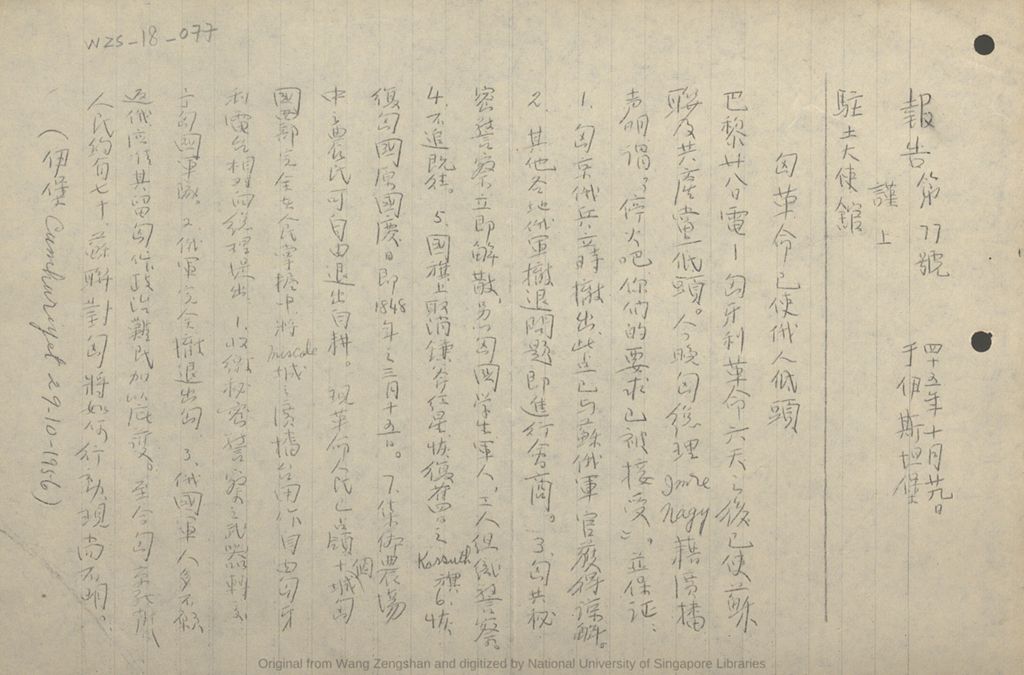 WZS-18-077
報告第77號 四十五年十月廿九日
謹上 于伊斯坦堡
駐土大使館
匈革命已使俄人低頭
巴黎廿八電—匈牙利革命六天之後已使蘇
聯及共產黨低頭。今晚匈總理 Imre Nagy 藉廣播
声明謂:「停火吧你們的要求已被接受」。並保证:
1. 匈京俄兵立時撤出,此点已与蘇俄軍官獲得諒解。
2. 其他各地俄軍撤退問題即進行會商。3. 匈共秘
密警察立即解散,另以匈國学生軍人、工人組織警察。
4. 不追既往。5. 國旗上取消鎌斧红星恢復舊日之 Kossuth 旗 6. 恢
復匈國原國慶日即1848年之三月十五日。7. 集体農場
中之農民可自由退出自耕。現革命人民已占領十個城匈
國西部完全在人民掌握中將 Miscolc 城之廣播台用作自由匈牙
利電台相对向總理提出 1. 收繳秘密警察之武器
于匈國軍隊。2. 俄軍完全撤退出匈 3. 俄國軍人多不願
返俄應准其留匈作政治難民加以庇護。至今匈京
人民約有七十 蘇聯對匈將如何行動現尚不明。
(伊堡 Cumhuriyet 29-10-1956)
Original from Wang Zengshan and digitized by National University of Singapore Libraries